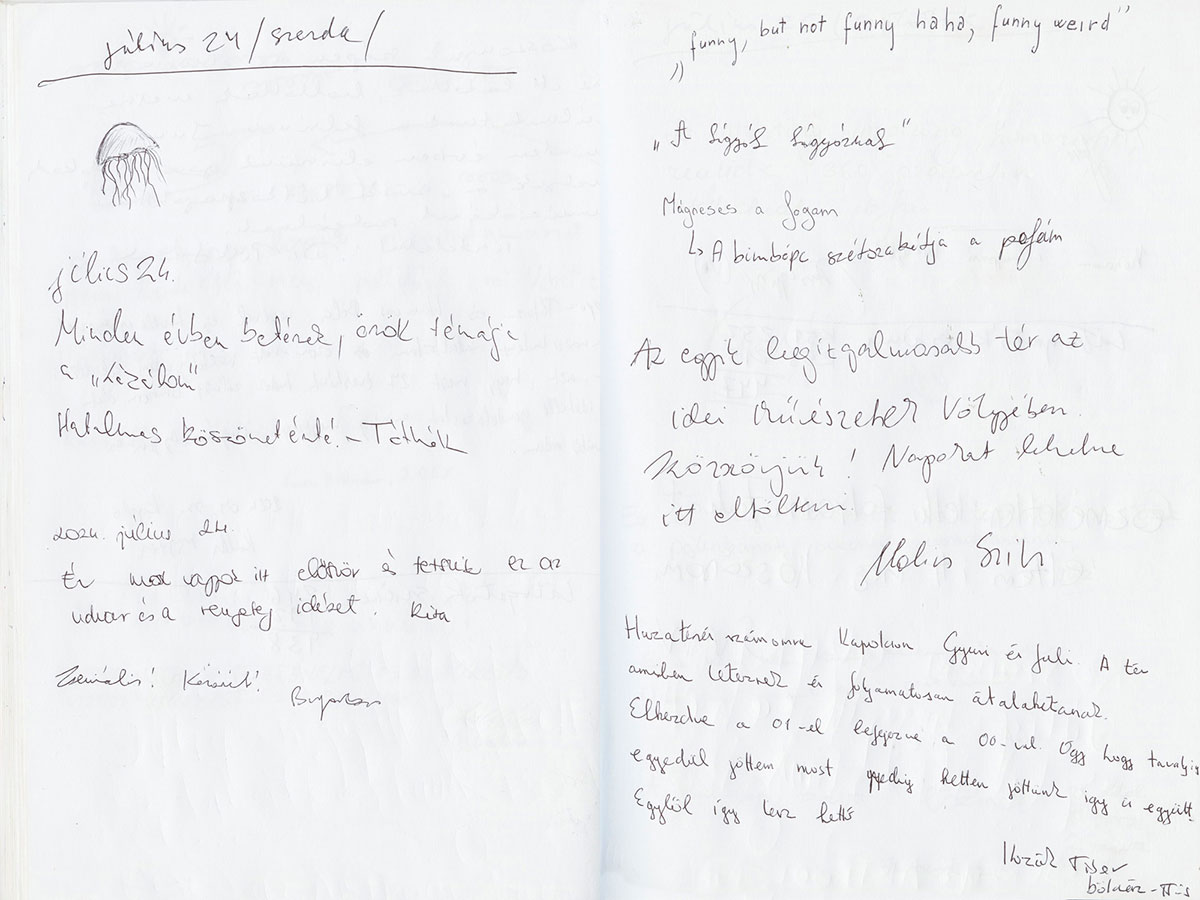 július 24 /szerda/
július 24.
Minden évben betérek, örök témája
a „Lázálom"
Hatalmas köszönet érte! – Tóthék
2024. július 24.
Én most vagyok itt először és tetszik ez az
udvar és a rengeteg idézet. Rita
Zseniális! Köszi!
„funny, but not funny haha, funny weird"
„A súgyók súgyóznak"
Mágneses a fogam
↳ A bimbópc szétszakítja a pofám
Az egyik legizgalmasabb tér az
idei Művészetek Völgyében.
Köszönjük! Napokat lehetne
itt eltölteni.
Hazatérés számomra Kapolcson Gyuri és Juli. A tér
amiben léteznek és folyamatosan átalakítanak.
Elkezdve a 01-el befejezve a 00-val. Úgy hogy tavaly is
egyedül jöttem most pedig ketten jöttünk így is együtt.
Egyből így lesz kettő